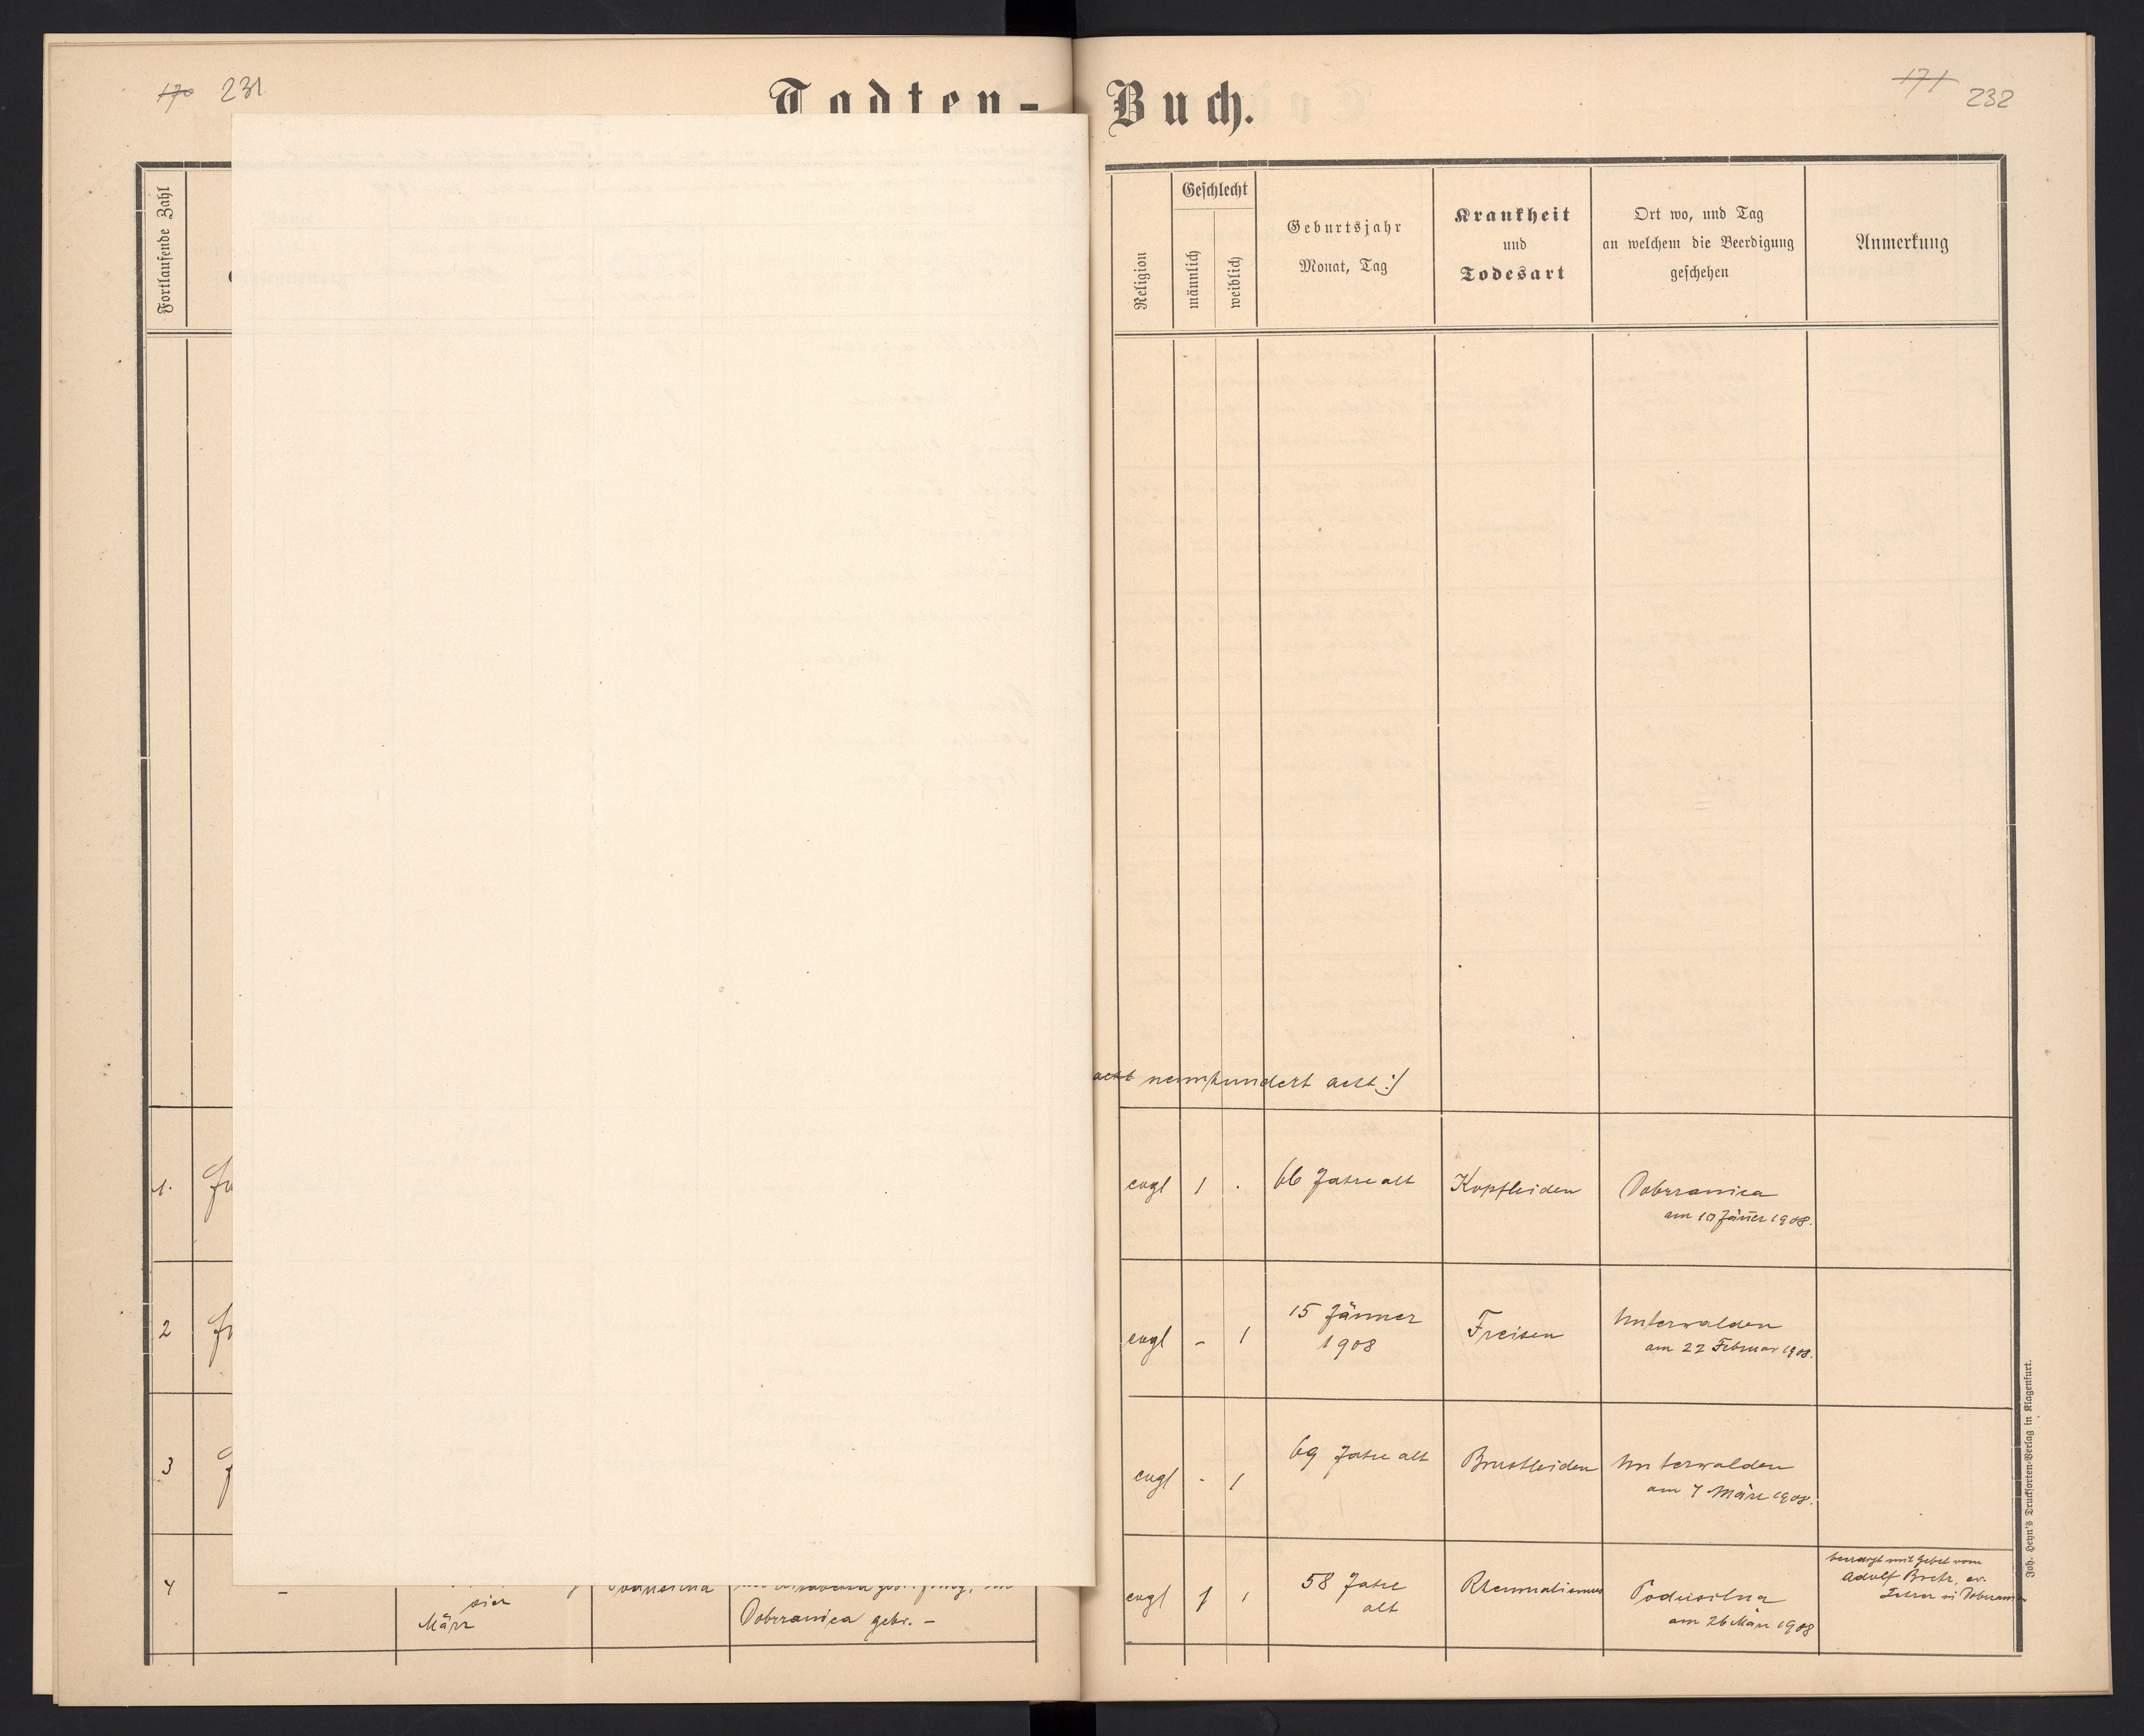 170 231
171
232
Todten-Buch.
Fortlaufende Zahl
Religion
Geschlecht
männlich
weiblich
Geburtsjahr
Monat, Tag
Krankheit
und
Todesart
Ort wo, und Tag
an welchem die Beerdigung
geschehen
Anmerkung
acht neunhundert acht :/
1.
evgl 1 . 66 Jahre alt Kopfleiden Dobrzanica
am 10 Jäner 1908.
2
evgl - 1 15 Jänner
1908
Freisen Unterwalden
am 22 Februar 1908.
3
evgl . 1 69 Jahre alt Brustleiden Unterwalden
am 7 März 1908.
4 -
März
Dobrzanica geb. -
evgl 1 58 Jahre
alt
Rheumatismus Podusilna
am 26 März 1908
besorgt mit Gebet vom
Adolf ev.
in
Joh. Heyn's Drucksorten-Verlag in Klagenfurt.